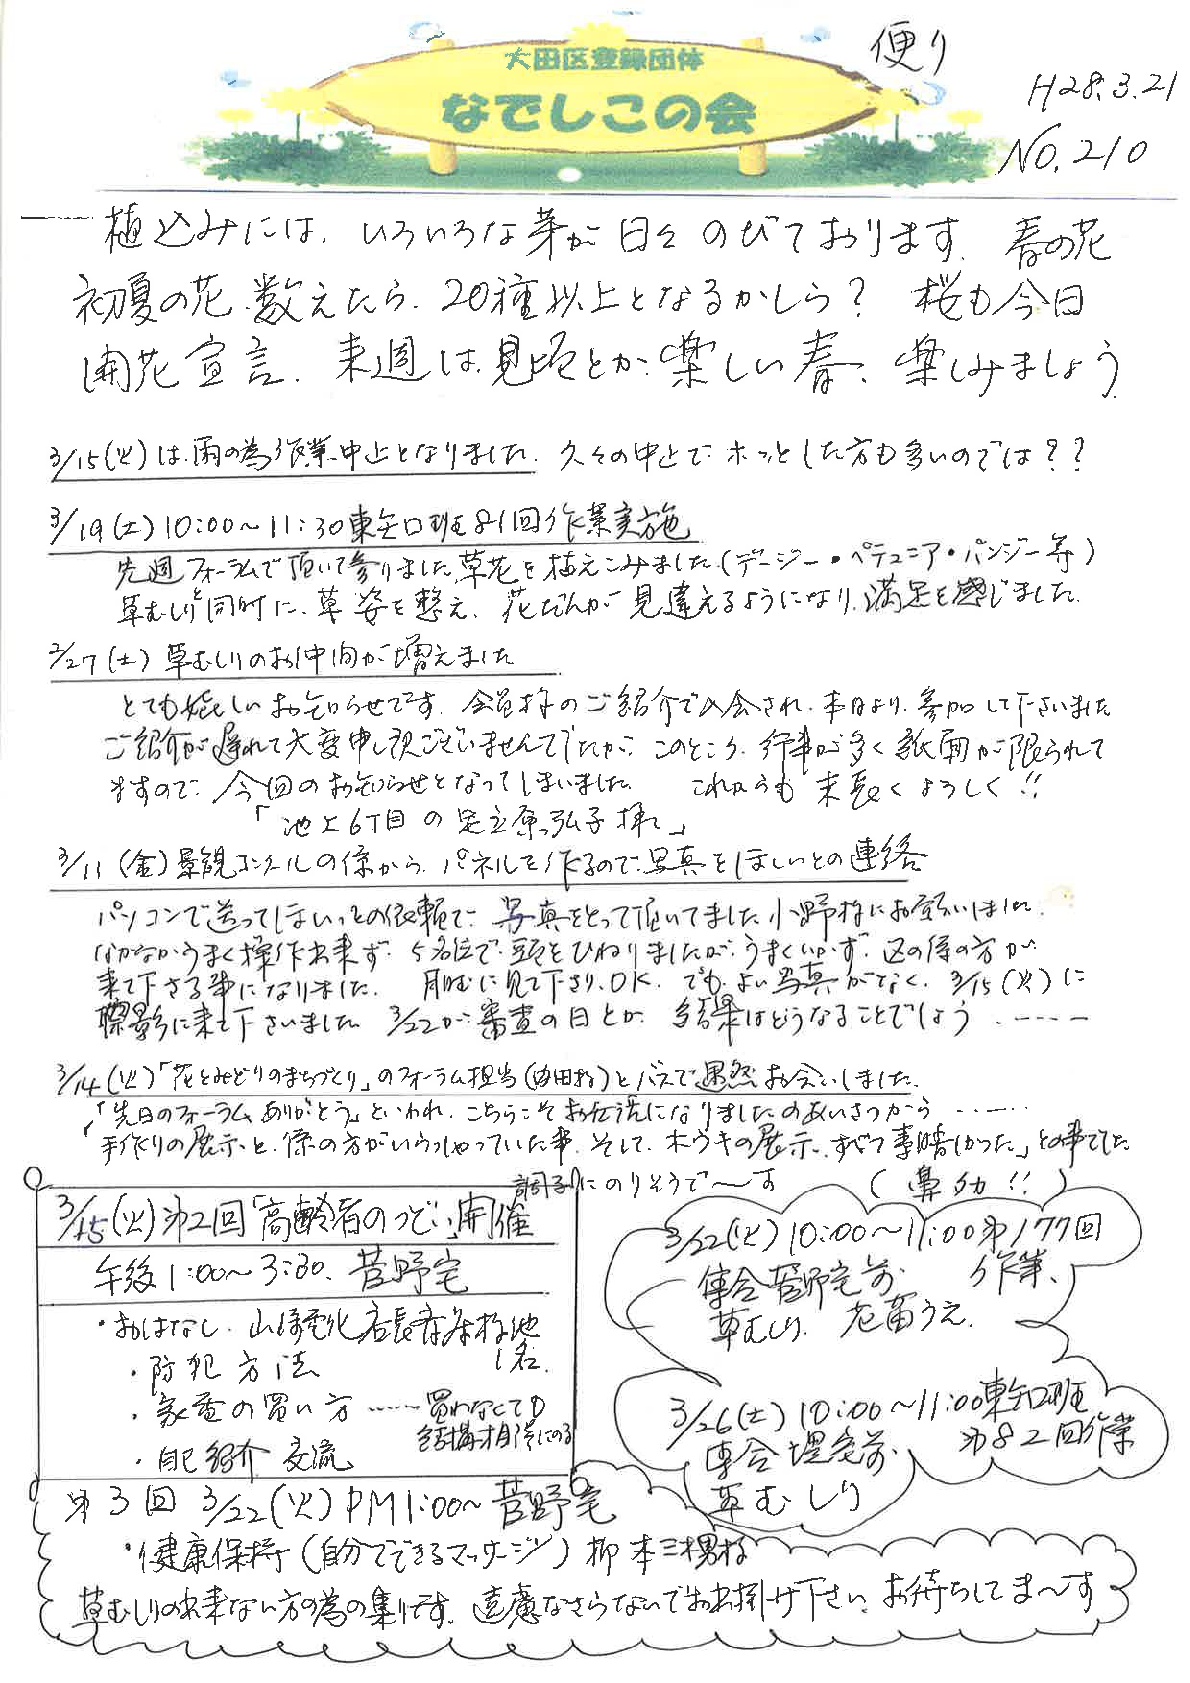 大田区登録団体
なでしこの会
便り
H28.3.21
No.210
植込みには、いろいろな芽が日々のびております。春の花
初夏の花、数えたら、20種以上となるかしら？ 桜も今日
開花宣言、来週は見頃とか、楽しい春、楽しみましょう
3/15(火)は、雨の為作業中止となりました。久々の中止で、ホッとした方も多いのでは？？
3/19(土)10:00～11:30東矢口班81回作業実施
先週フォーラムで頂いて参りました草花を植えこみました。(デージー・ペチュニア・パンジー等)
草むしりと同時に、草姿を整え、花だんが見違えるようになり、満足を感じました。
2/27(土)草むしりのお仲間が増えました
とても嬉しいお知らせです。会員様のご紹介で入会され、本日より、参加して下さいました
ご紹介が遅れて大変申し訳ございませんでしたが、このところ、行事が多く紙面が限られて
ますので、今回のお知らせとなってしまいました これからも末長くよろしく!!
「池上6丁目の足立原弘子様」
3/11(金)景観コンクールの係から、パネルを作るので、写真をほしいとの連絡
パソコンで送ってほしいとの依頼で、写真をとって頂いてました小野様にお願いしました。
なかなかうまく操作出来ず、5名位で、頭をひねりましたが、うまくいかず、区の係の方が
来て下さる事になりました。 見て下さり、OK、でも、よい写真がなく、3/15(火)に
撮影に来て下さいました 3/22が審査の日とか、結果はどうなることでしょう ‥‥‥
3/14(火)「花とみどりのまちづくり」のフォーラム担当( 田様)とバスで偶然お会いしました。
「先日のフォーラムありがとう」といわれ、こちらこそお世話になりましたのあいさつから ‥‥‥
「手作りの展示と、係の方がいらっしゃっていた事、そして、ホウキの展示、すべて素晴しかった」との事でした
調子にのりそうで～す (鼻タカ!!)
3/15(火)第2回「高齢者のつどい」開催
午後1:00～3:30、菅野宅
・おはなし、山崎電化店長 様他
1名
・防犯方法
・家電の買い方 ‥‥‥ 買わなくても
結構相談にのる
・自己紹介 交流
3/22(火)10:00～11:00第177回
集合菅野宅前 作業、
草むしり、花苗うえ、
3/26(土)10:00～11:00東矢口班
集合 宅前 第82回作業
草むしり
第3回 3/22(火)PM1:00～菅野宅
・健康保持(自分でできるマッサージ)柳本三男様
草むしりの出来ない方の為の集りです。遠慮なさらないでお出掛け下さい。お待ちしてま～す